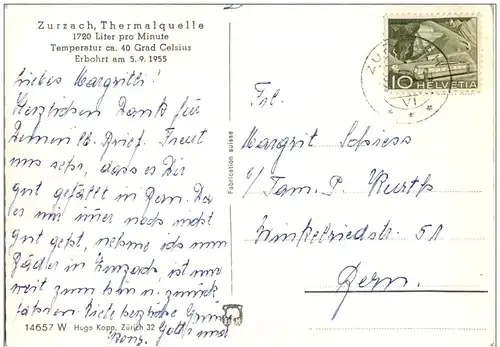 Zurzach, Thermalquelle
1720 Liter pro Minute
Temperatur ca. 40 Grad Celsius
Erbohrt am 5. 9. 1955
Liebes Margritli!
Herzlichen Dank für
Deinen lb. Brief. Freut
uns sehr, dass es Dir
gut gefällt in Bern. Da
es mir immer noch nicht
gut geht, nehme ich nun
Bäder in Zurzach, ist nur
weit zum hin u. zurück
fahren. Viele herzliche Grüsse
14657 W Hugo Kopp, Zürich 32
Fabrication suisse
10 HELVETIA
VI
Frl.
Margrit Schiess
c/ Fam. P. Kurth
Winkelriedstr. 51
Bern.